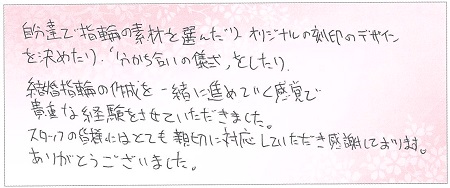 自分達で指輪の素材を選んだり、オリジナルの刻印のデザイン
を決めたり、"分かち合いの儀式"をしたり、
結婚指輪の作成を一緒に進めていく感覚で
貴重な経験をさせていただきました。
スタッフの皆様にはとても親切に対応していただき感謝しております。
ありがとうございました。